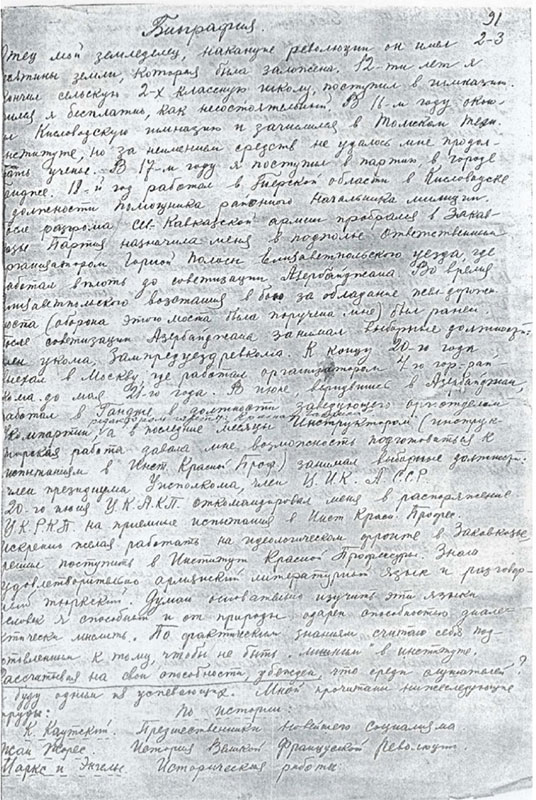 91
Биография.
Отец мой земледелец, накануне революции он имел 2-3
десятины земли, которая была заложена. 12-ти лет я
кончил сельскую 2-х классную школу, поступил в гимназию.
учился я бесплатно, как несостоятельный. В 16-м году окон-
Кисловодскую гимназию и зачислился в Томский техн.
институте, но за неимением средств не удалось мне продол-
жать ученье. В 17-м году я поступил в партию в городе
Гандже. 18-й год работал в Терской области в Кисловодске
в должности помощника районного начальника милиции.
После разгрома Сев-Кавказской армии пробрался в Закав-
Партия назначила меня в подполье ответственным
организатором Горной Полосы Елизаветпольского уезда, где
работал вплоть до советизации Азербайджана. Во время
Елизаветпольского восстания в бою за обладание жел-дорожн.
моста (оборона этого места была поручена мне) был ранен.
После советизации Азербайджана занимал выборные должности:
член укома, Зампредуездревкома. К концу 20-го года
уехал в Москву, где работал организатором 4-го гор-рай
кома до мая 21-го года. В июне вернувшись в Азербайджан,
работал в Гандже в должности заведующего орготделом
Укомпартии, а в последние месяцы Инструктором (инструк-
торская работа давала мне возможность подготовиться к
испытаниям в Инст. Красной Проф.) занимал выборные должност:
член президиума Уисполкома, член Ц.И.К. А.С.С.Р.
20-го июня Ц.К.А.К.П. откомандировал меня в распоряжение
Ц.К.Р.К.П. на приемные испытания в Инст Красн. Профес.
Искренно желая работать на идеологическом фронте в Закавказье
решил поступить в Институт Красной Профессуры. Знаю
удовлетворительно армянский литературный язык и разговор-
ный тюркский. Думаю основательно изучить эти языки
Человек я способный и от природы одарен способностью диалек-
тически мыслить. По фактическим знаниям считаю себя под
готовленным к тому, чтобы не быть „лишним" в институте.
Рассчитывая на свои способности, убежден, что среди слушателей ?
буду одним из успевающих. Мной прочитаны нижеследующие
труды: По истории:
К. Каутский. Предшественники новейшего социализма
Жан Жорес. История Великой Французской Революции.
Маркс и Энгельс Исторические работы